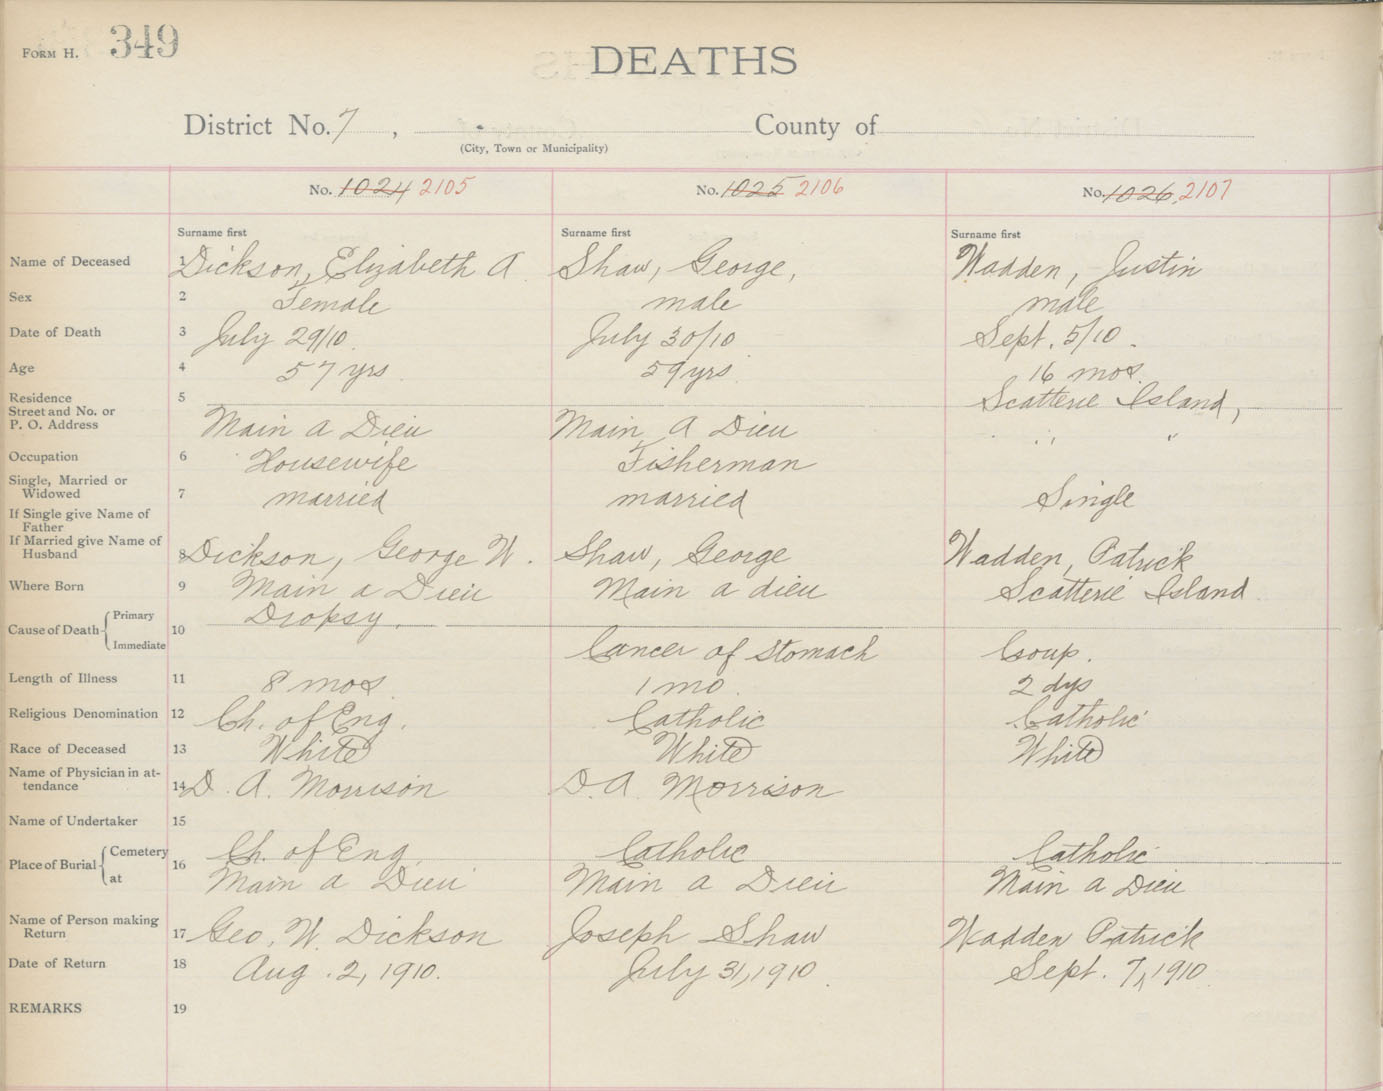 FORM H. 349
DEATHS
District No. 7 , County of
(City, Town or Municipality)
No. 1024 2105 No. 1025 2106 No. 1026 2107
Surname first Surname first Surname first
Name of Deceased 1 Dickson, Elizabeth A Shaw, George, Wadden, Justin
Sex 2 Female male male
Date of Death 3 July 29/10. July 30/10 Sept. 5/10.
Age 4 57 yrs 59 yrs. 16 mos.
Residence 5 Scatterie Island,
Street and No. or
P. O. Address Main a Dieu Main A Dieu " "
Occupation 6 Housewife Fisherman
Single, Married or
Widowed 7 married married Single
If Single give Name of
Father
If Married give Name of
Husband 8 Dickson, George W. Shaw, George Wadden, Patrick
Where Born 9 Main a Dieu Main a dieu Scatterie Island
Cause of Death Primary 10 Dropsy.
Immediate Cancer of Stomach Croup.
Length of Illness 11 8 mos 1 mo. 2 dys
Religious Denomination 12 Ch. of Eng. Catholic Catholic
Race of Deceased 13 White White White
Name of Physician in at-
tendance 14 D. A. Morrison D. A. Morrison
Name of Undertaker 15
Place of Burial Cemetery 16 Ch. of Eng. Catholic Catholic
at Main a Dieu Main a Dieu Main a Dieu
Name of Person making
Return 17 Geo. W. Dickson Joseph Shaw Wadden Patrick
Date of Return 18 Aug. 2, 1910. July 31, 1910. Sept. 7, 1910
REMARKS 19